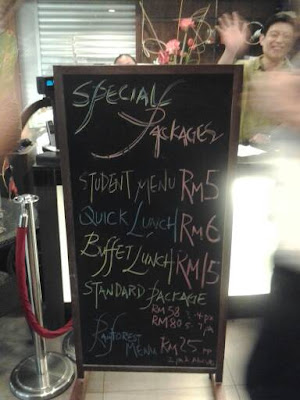 Special
Packages
Student Menu RM5
Quick Lunch RM6
Buffet Lunch RM15
Standard Package
RM58
RM80
Rainforest
Menu RM25